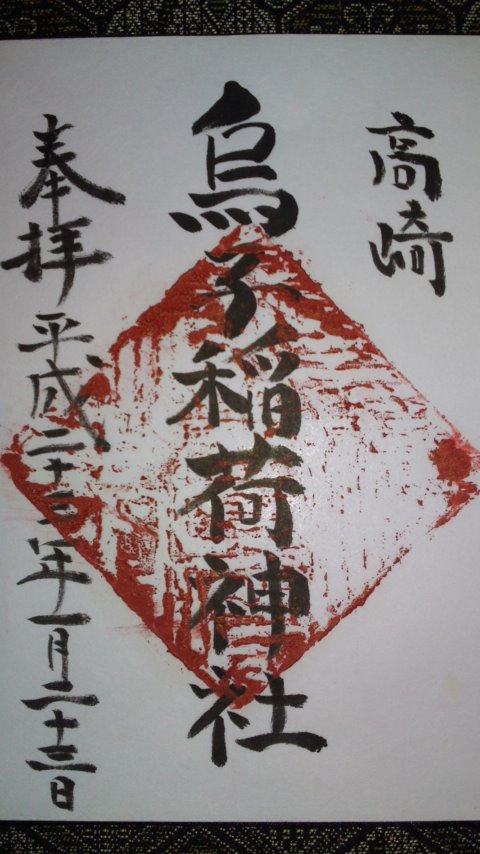 高崎
烏子稲荷神社
奉拝 平成二十三年一月二十三日